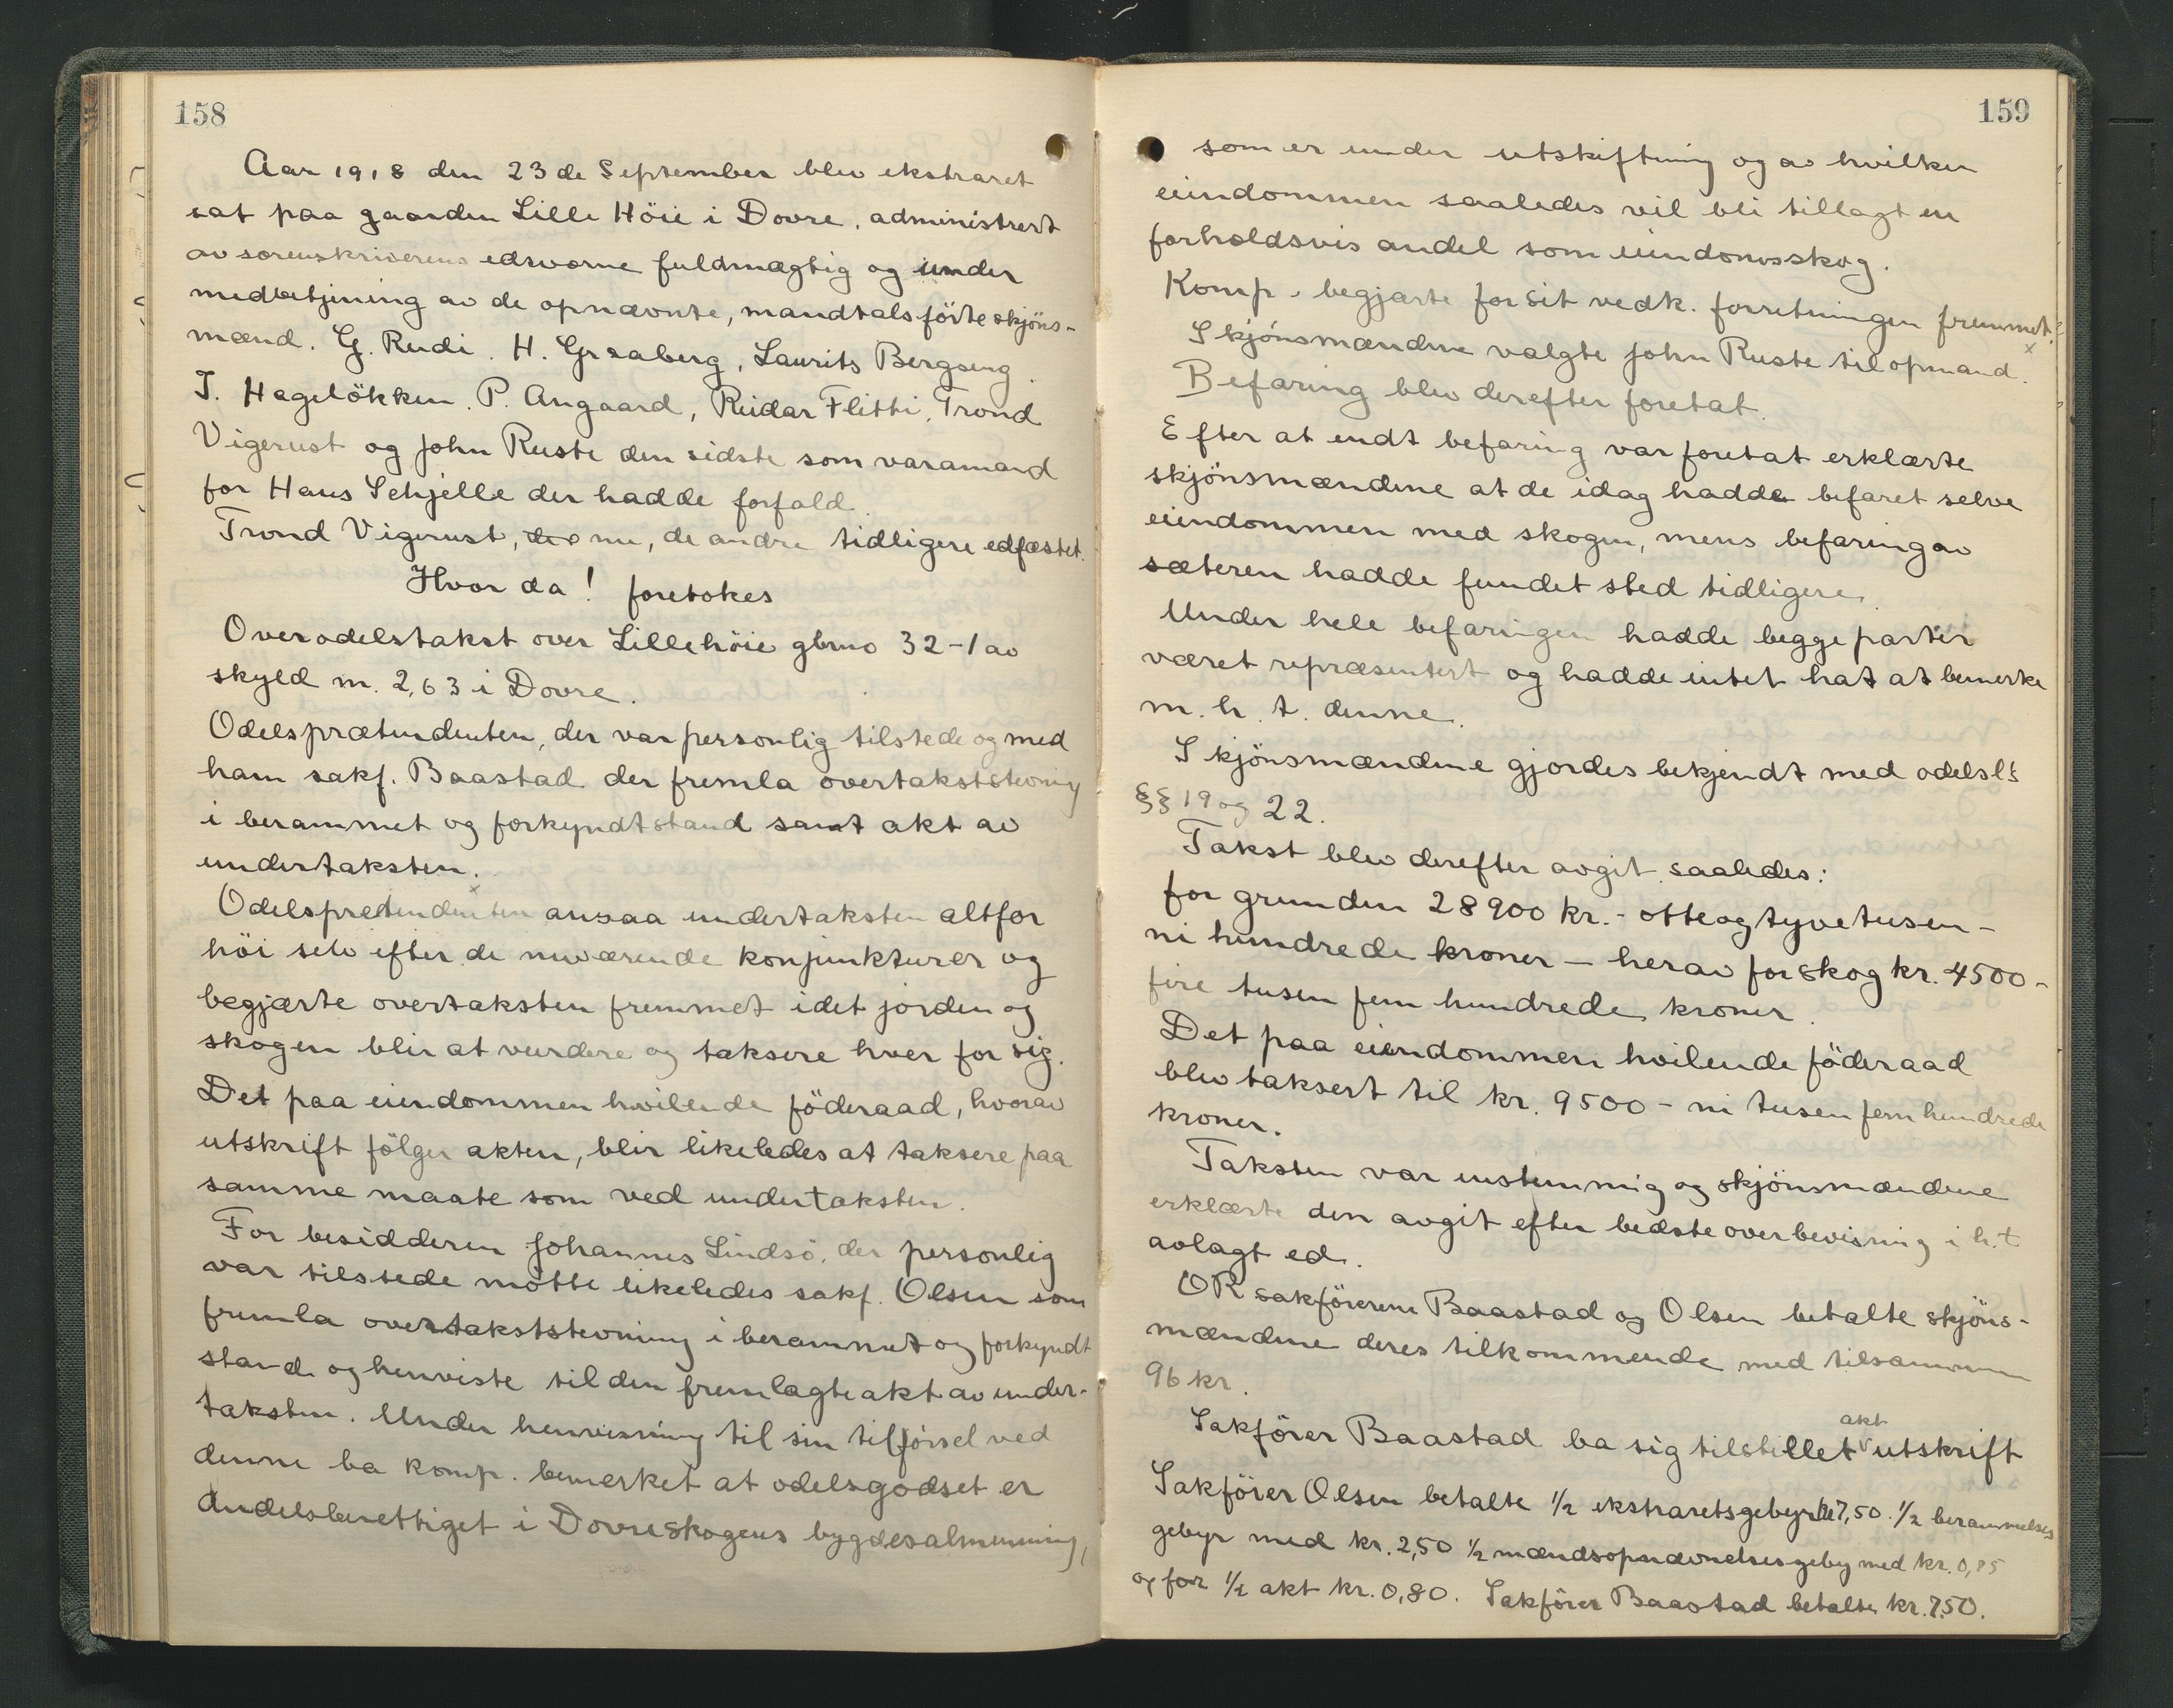 158
Aar 1918 den 23de September blev ekstraret
sat paa gaarden Lille Höie i Dovre, administrert
av sorenskriverens edsvorne fuldmægtig og under
medbetjening av de opnævnte, mandtalsförte skjöns-
mænd. G. Rudi. H. Graaberg, Laurits Bergseng
J. Hagelökken. P. Angaard, Reidar Flitti, Trond
Vigerust og John Ruste den sidste som varamand
for Hans Schjelle der hadde forfald.
Trond Vigerust, nu, de andre tidligere edfæstet.
Hvor da! foretokes
Overodelstakst over Lillehöie gbrno 32-1 av
skyld m. 2,63 i Dovre.
Odelsprætendenten, der var personlig tilstede og med
ham sakf. Baastad der fremla overtakststevning
i berammet og forkyndt stand samt akt av
undertaksten.
Odelspretendenten ansaa undertaksten altfor
höi selv efter de nuværende konjunkturer og
begjærte overtaksten fremmet idet jorden og
skogen blir at vurdere og taksere hver for sig.
Det paa eiendommen hvilende föderaad, hvorav
utskrift fölger akten, blir likeledes at taksere paa
samme maate som ved undertaksten.
For besidderen Johannes Lindsö, der personlig
var tilstede mötte likeledes sakf. Olsen som
fremla overtakststevning i berammet og forkyndt
stand og henviste til den fremlagte akt av under-
taksten. Under henvisning til sin tilförsel ved
denne ba komp. bemerket at odelsgodset er
andelsberettiget i Dovreskogens bygdesalmenning,
159
som er under utskiftning og av hvilken
eiendommen saaledes vil bli tillagt en
forholdsvis andel som eiendomsskog.
Komp. begjærte for sit vedk. forretningen fremmet.
Skjönsmændene valgte John Ruste til opmand.
Befaring blev derefter foretat.
Efter at endt befaring var foretat erklærte
skjönsmændene at de idag hadde befaret selve
eiendommen med skogen, mens befaring av
sæteren hadde fundet sted tidligere.
Under hele befaringen hadde begge parter
været repræsentert og hadde intet hat at bemerke
m. h. t. denne.
Skjönsmændene gjordes bekjendt med odelsl's
§§ 19 og 22.
Takst blev derefter avgit saaledes:
for grunden 28900 kr. - otteogtyvetusen -
ni hundrede kroner - herav for skog kr. 4500 -
fire tusen fem hundrede kroner.
Det paa eiendommen hvilende föderaad
blev taksert til kr. 9500 - ni tusen fem hundrede
kroner.
Taksten var enstemmig og skjönsmændene
erklærte den avgit efter bedste overbevisning i h.t
avlagt ed.
OR sakförerne Baastad og Olsen betalte skjöns-
mændene deres tilkommende med tilsammen
96 kr.
Sakförer Baastad ba sig tilstillet akt utskrift
Sakförer Olsen betalte 1/2 ekstraretsgebyr kr 7,50. 1/2 berammelses
gebyr med kr. 2,50 1/2 mændsopnævnelsesgeby med kr. 0,85
og for 1/2 akt kr. 0,80. Sakförer Baastad betalte kr. 7,50.